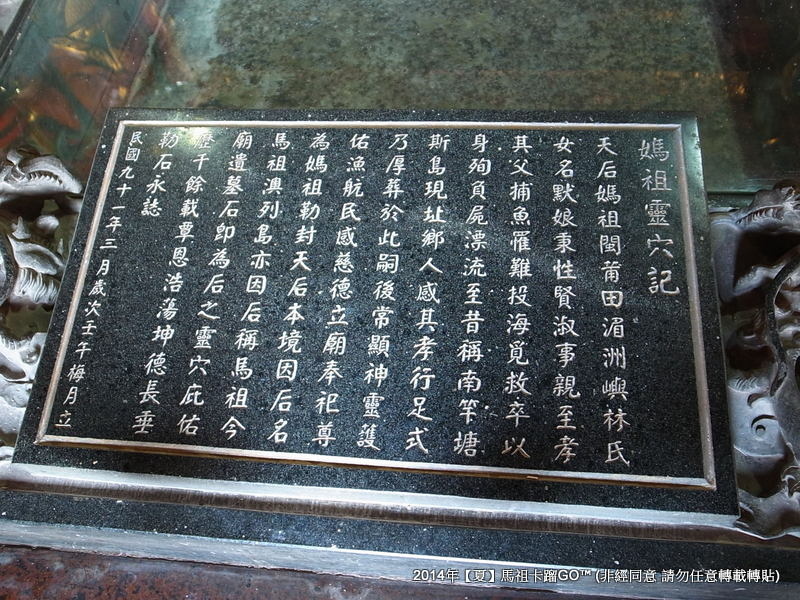 媽祖靈穴記
天后媽祖閩莆田湄洲嶼林氏
女名默娘秉性賢淑事親至孝
其父捕魚罹難投海覓救卒以
身殉負屍漂流至昔稱南竿塘
斯島現址鄉人感其孝行足式
乃厚葬於此嗣後常顯神靈護
佑漁航民感慈德立廟奉祀尊
為媽祖勒封天后本境因后名
馬祖澳列島亦因后稱馬祖今
廟遺墓石即為后之靈穴庇佑
歷千餘載尊恩浩蕩坤德長垂
勒石永誌
民國九十一年三月歲次壬午梅月立
2014年【夏】馬祖卡蹓GO™ (非經同意 請勿任意轉載轉貼)